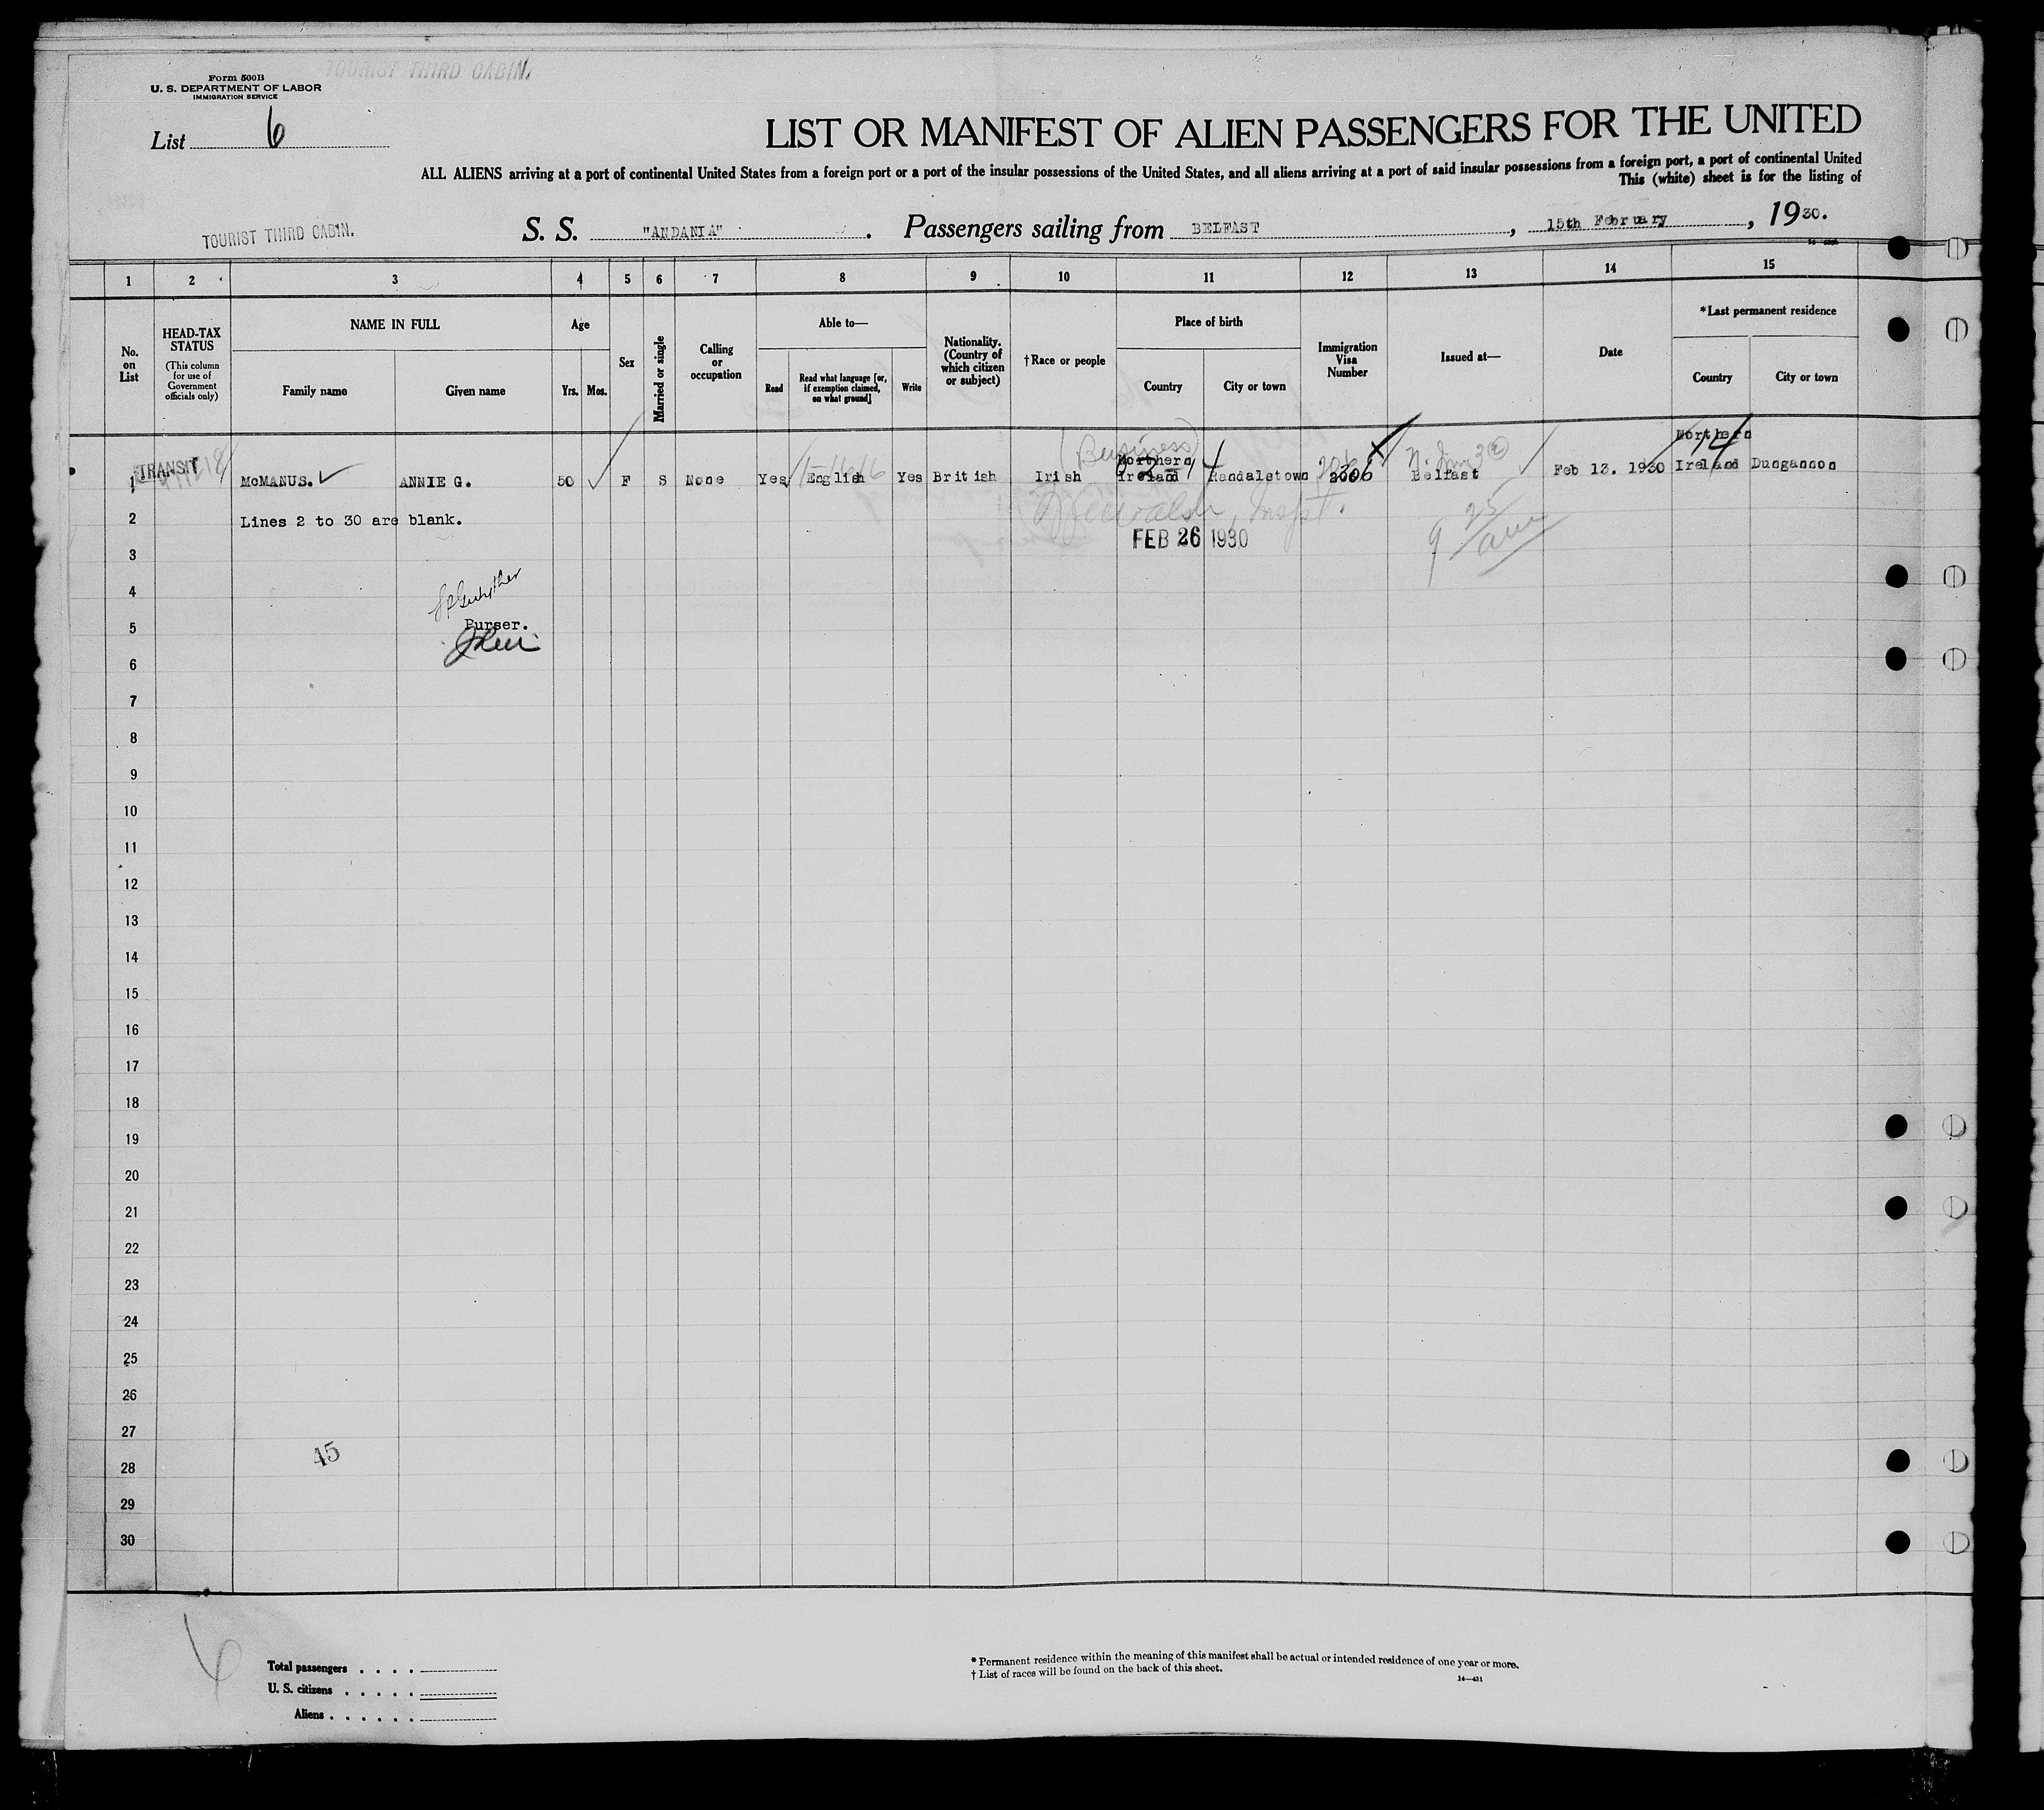 TOURIST THIRD CABIN.
Form 500B
U. S. DEPARTMENT OF LABOR
IMMIGRATION SERVICE
List 6
LIST OR MANIFEST OF ALIEN PASSENGERS FOR THE UNITED
ALL ALIENS arriving at a port of continental United States from a foreign port or a port of the insular possessions of the United States, and all aliens arriving at a port of said insular possessions from a foreign port, a port of continental United
This (white) sheet is for the listing of
TOURIST THIRD CABIN.
S. S. "ANDANIA" . Passengers sailing from BELFAST , 15th February , 1930.
1 2 3 4 5 6 7 8 9 10 11 12 13 14 15
No. on List
HEAD-TAX STATUS
(This column for use of Government officials only)
NAME IN FULL
Family name Given name
Age
Yrs. Mos.
Sex
Married or single
Calling or occupation
Able to—
Read
Read what language [or, if exemption claimed, on what ground]
Write
Nationality. (Country of which citizen or subject)
†Race or people
Place of birth
Country City or town
Immigration Visa Number
Issued at—
Date
*Last permanent residence
Country City or town
(Business)
1 TRANSIT McMANUS. ANNIE G. 50 F S None Yes English Yes British Irish Northern Ireland Randalstown 2306 Belfast Feb 13. 1930 Northern Ireland Dungannon
14
2 Lines 2 to 30 are blank.
Insp.
FEB 26 1930
3
4
5 Purser.
6
7
8
9
10
11
12
13
14
15
16
17
18
19
20
21
22
23
24
25
26
27
45
28
29
30
6
Total passengers
U. S. citizens
Aliens
* Permanent residence within the meaning of this manifest shall be actual or intended residence of one year or more.
† List of races will be found on the back of this sheet.
14—431